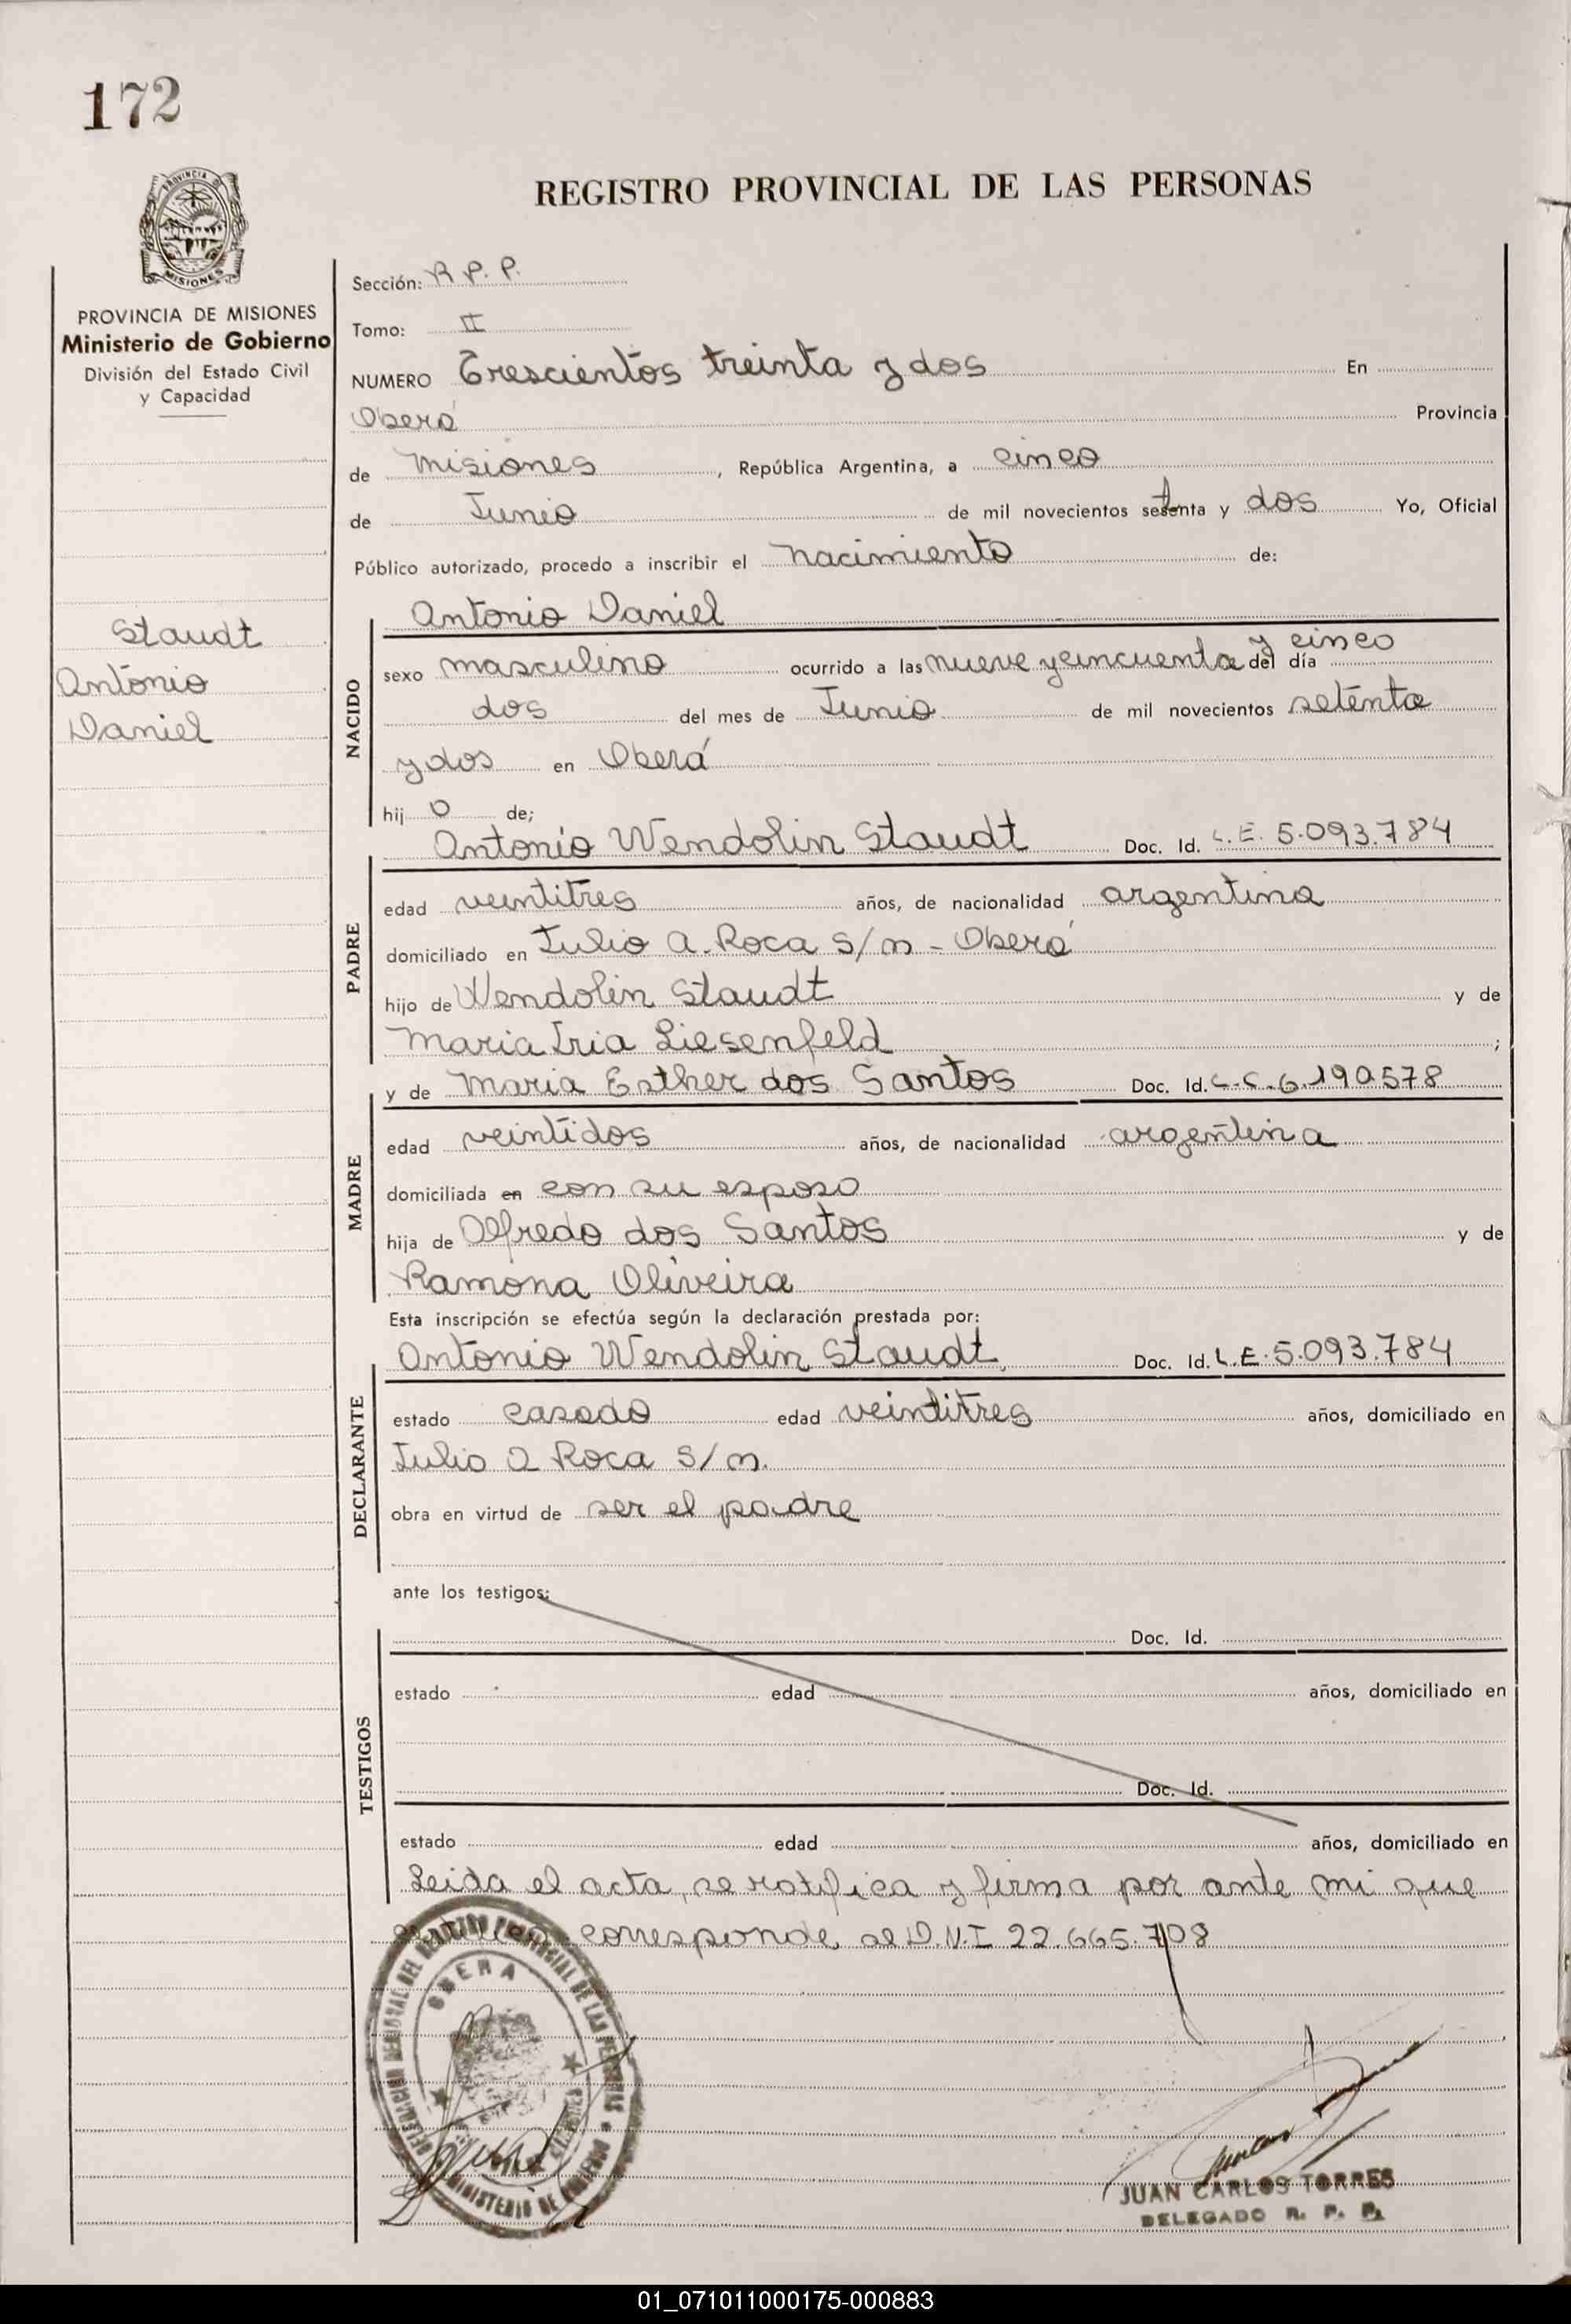 172
PROVINCIA DE
MISIONES
REGISTRO PROVINCIAL DE LAS PERSONAS
PROVINCIA DE MISIONES
Ministerio de Gobierno
División del Estado Civil
y Capacidad
Staudt
Antonio
Daniel
Sección: R P. P.
Tomo: II
NUMERO Trescientos treinta y dos En
Oberá Provincia
de Misiones, República Argentina, a cinco
de Junio de mil novecientos setenta y dos Yo, Oficial
Público autorizado, procedo a inscribir el nacimiento de:
NACIDO
Antonio Daniel
y cinco
sexo masculino ocurrido a las nueve y cincuenta del día
dos del mes de Junio de mil novecientos setenta
y dos en Oberá
hijo de;
PADRE
Antonio Wendolin Staudt Doc. Id. L.E. 5.093.784
edad veintitres años, de nacionalidad argentina
domiciliado en Julio A. Roca S/n - Oberá
hijo de Wendolin Staudt y de
Maria Iria Liesenfeld ;
MADRE
y de Maria Esther dos Santos Doc. Id. L.C. 6.190.578
edad veintidos años, de nacionalidad argentina
domiciliada en con su esposo
hija de Alfredo dos Santos y de
Ramona Oliveira
Esta inscripción se efectúa según la declaración prestada por:
DECLARANTE
Antonio Wendolin Staudt Doc. Id. L.E. 5.093.784
estado casado edad veintitres años, domiciliado en
Julio A Roca S/n.
obra en virtud de ser el padre
ante los testigos:
TESTIGOS
Doc. Id.
estado edad años, domiciliado en
Doc. Id.
estado edad años, domiciliado en
Leida el acta, se ratifica y firma por ante mi que
corresponde al D.N.I 22.665.708
OBERA
JUAN CARLOS TORRES
DELEGADO R. P. P.
01_071011000175-000883